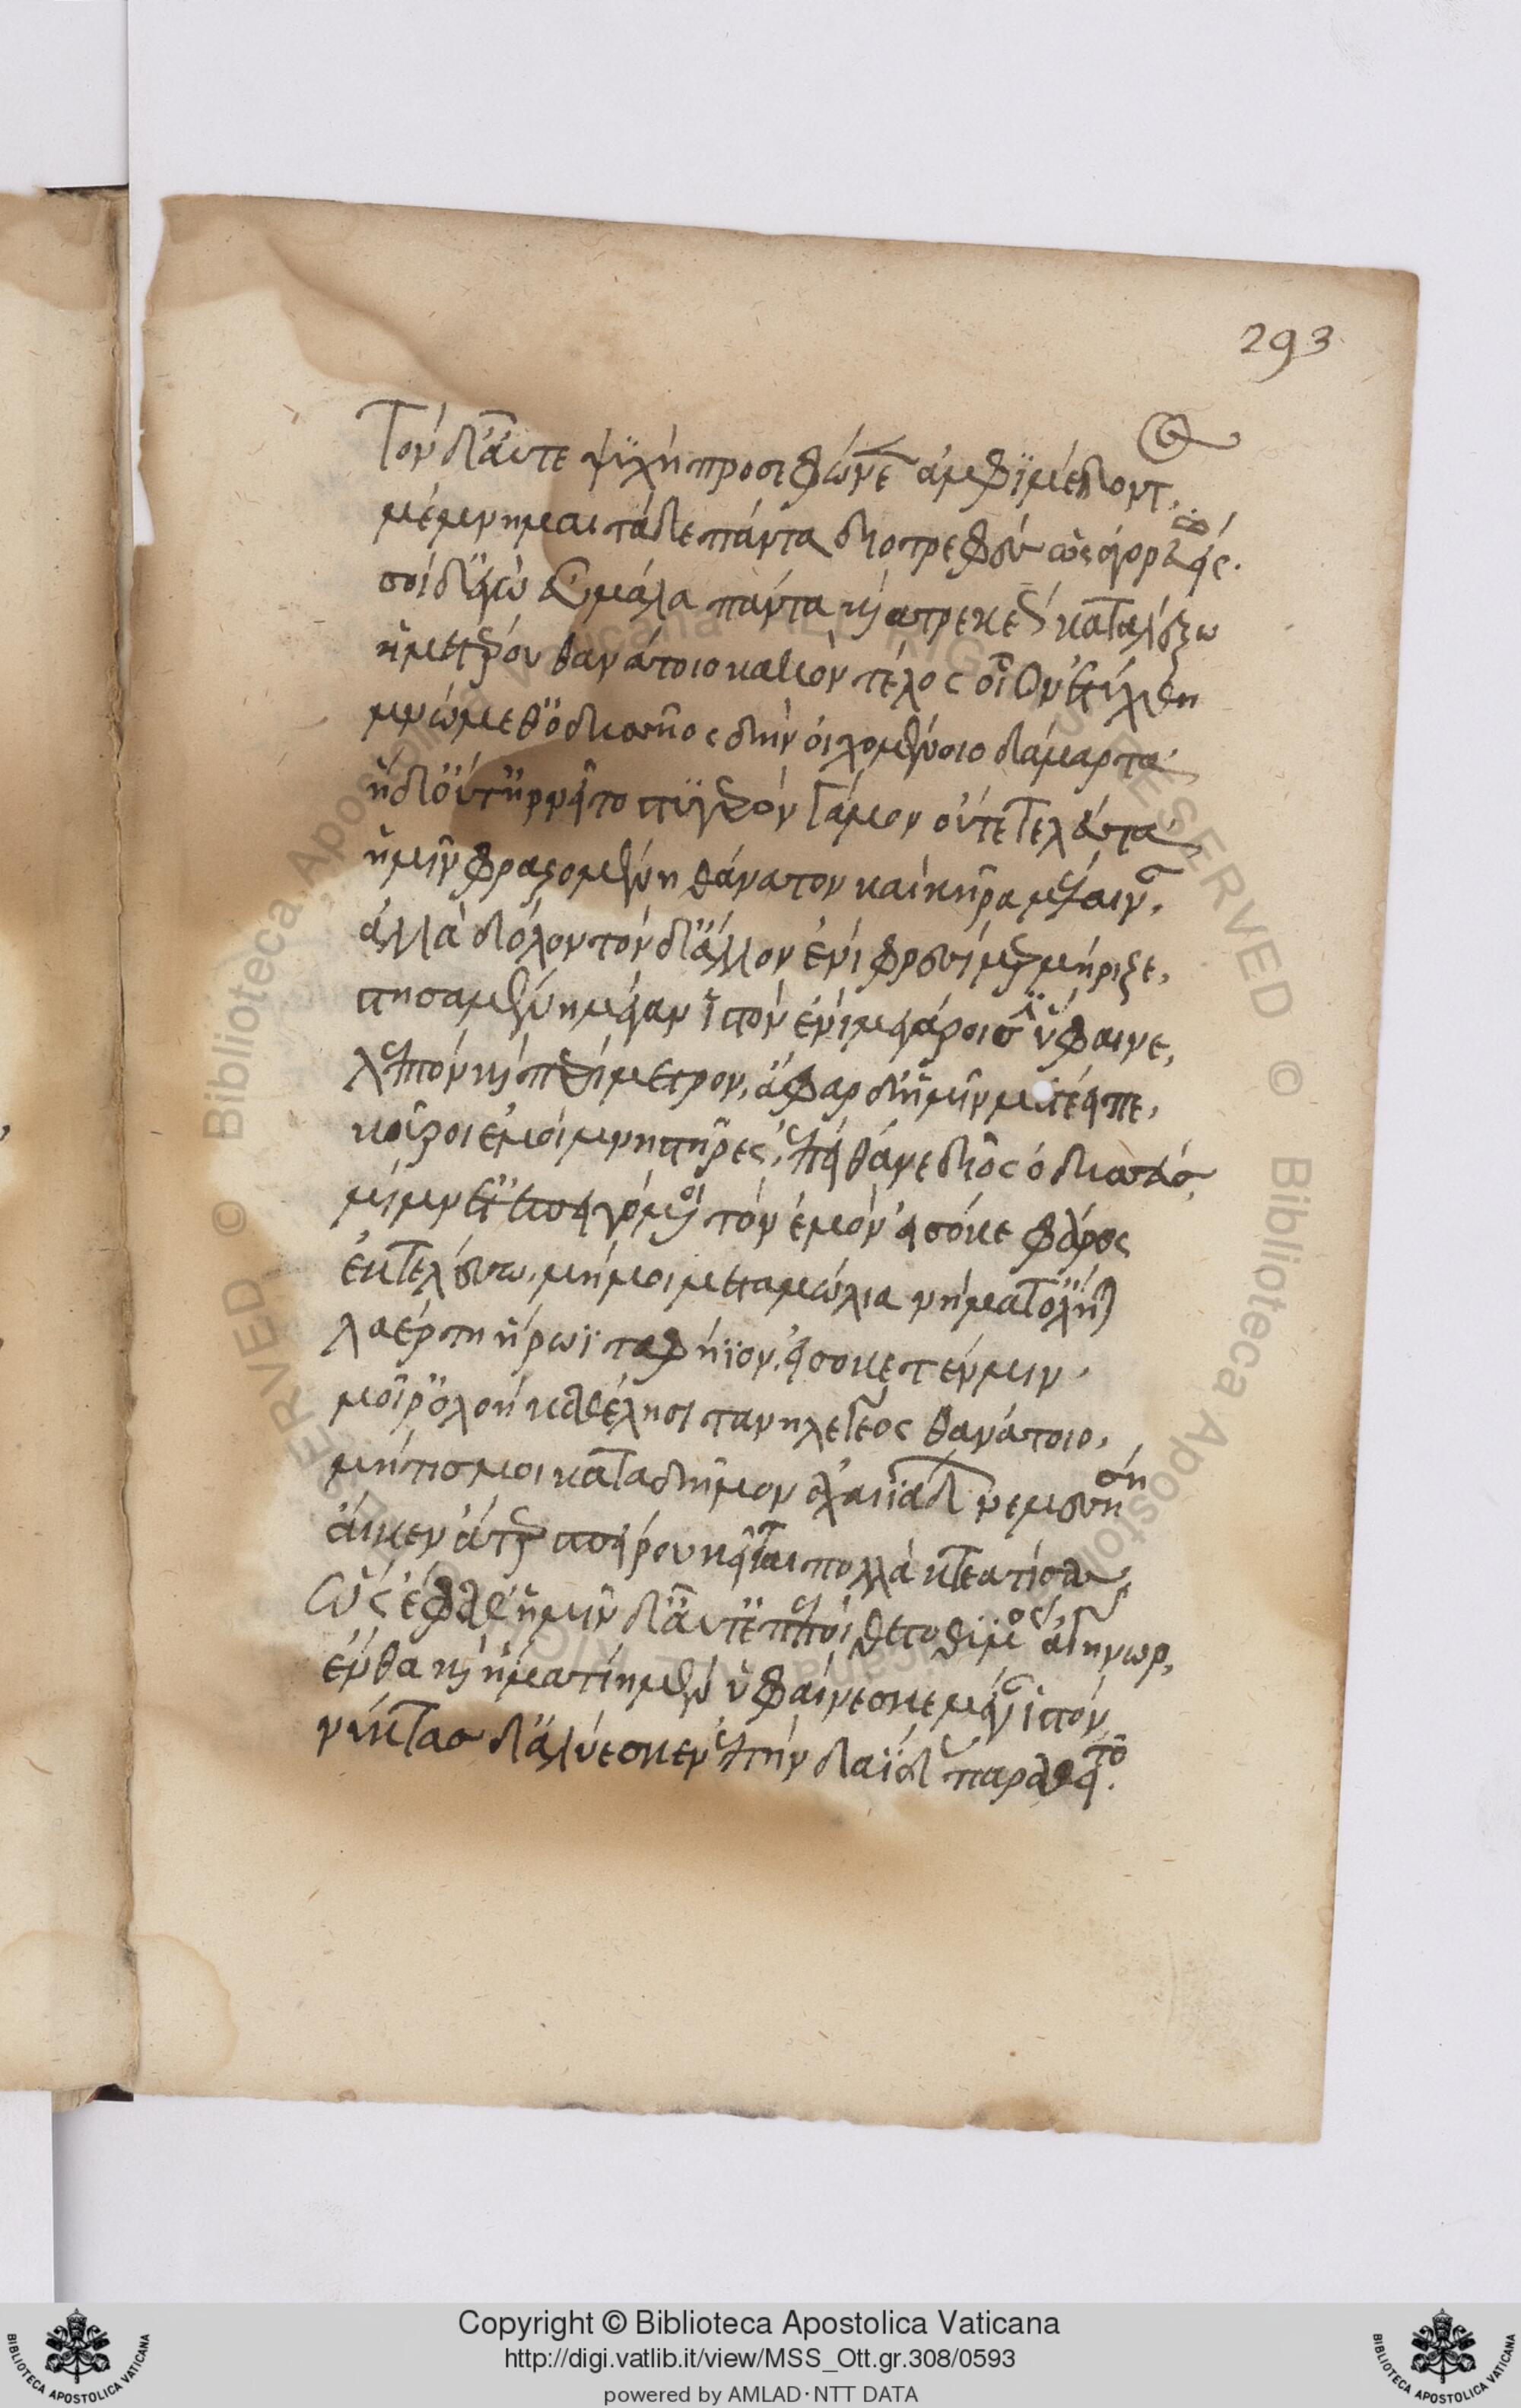 293
Τὸν δ' αὖτε ψυχὴ προσεφώνεεν ἀμφιμέδοντ
μέμνημαι τάδε πάντα διοτρεφὲς ὡς ἀγορεύεις.
σοὶ δ' ἐγὼ εὖ μάλα πάντα καὶ ἀτρεκέως καταλέξω
ἡμετέρου θανάτοιο κακὸν τέλος οἷον ἐτύχθη
μνώμεθ' ὀδυσσῆος δὴν οἰχομένοιο δάμαρτα
ἡ δ' οὔτ' ἠρνεῖτο στυγερὸν γάμον οὔτε τελεύτα
ἡμῖν φραζομένη θάνατον καὶ κῆρα μέλαιναν
ἀλλὰ δόλον τόνδ' ἄλλον ἐνὶ φρεσὶ μερμήριξε,
στησαμένη μέγαν ἱστὸν ἐνὶ μεγάροισιν ὕφαινε,
λεπτὸν καὶ περίμετρον, ἄφαρ δ' ἡμῖν μετέειπε,
κοῦροι ἐμοὶ μνηστῆρες, ἐπεὶ θάνε δῖος ὀδυσσεύς,
μίμνετ' ἐπειγόμενοι τὸν ἐμὸν γάμον εἰσόκε φᾶρος
ἐκτελέσω, μή μοι μεταμώλια νήματ' ὄληται
λαέρτῃ ἥρωϊ ταφήϊον, εἰσόκε τέν μιν
μοῖρ' ὀλοὴ καθέλῃσι τανηλεγέος θανάτοιο,
μήτις μοι κατὰ δῆμον ἀχαιϊάδων νεμεσήσῃ
αἴκεν ἄτερ σπείρου κεῖται πολλὰ κτεατίσας
ὣς ἔφαθ' ἡμῖν δ' αὖτ' ἐπεπείθετο θυμὸς ἀγήνωρ,
ἔνθα καὶ ἠματίη μὲν ὑφαίνεσκε μέγαν ἱστόν
νύκτας δ' ἀλλύεσκεν ἐπὴν δαΐδας παραθεῖτο.
Copyright © Biblioteca Apostolica Vaticana
http://digi.vatlib.it/view/MSS_Ott.gr.308/0593
powered by AMLAD·NTT DATA